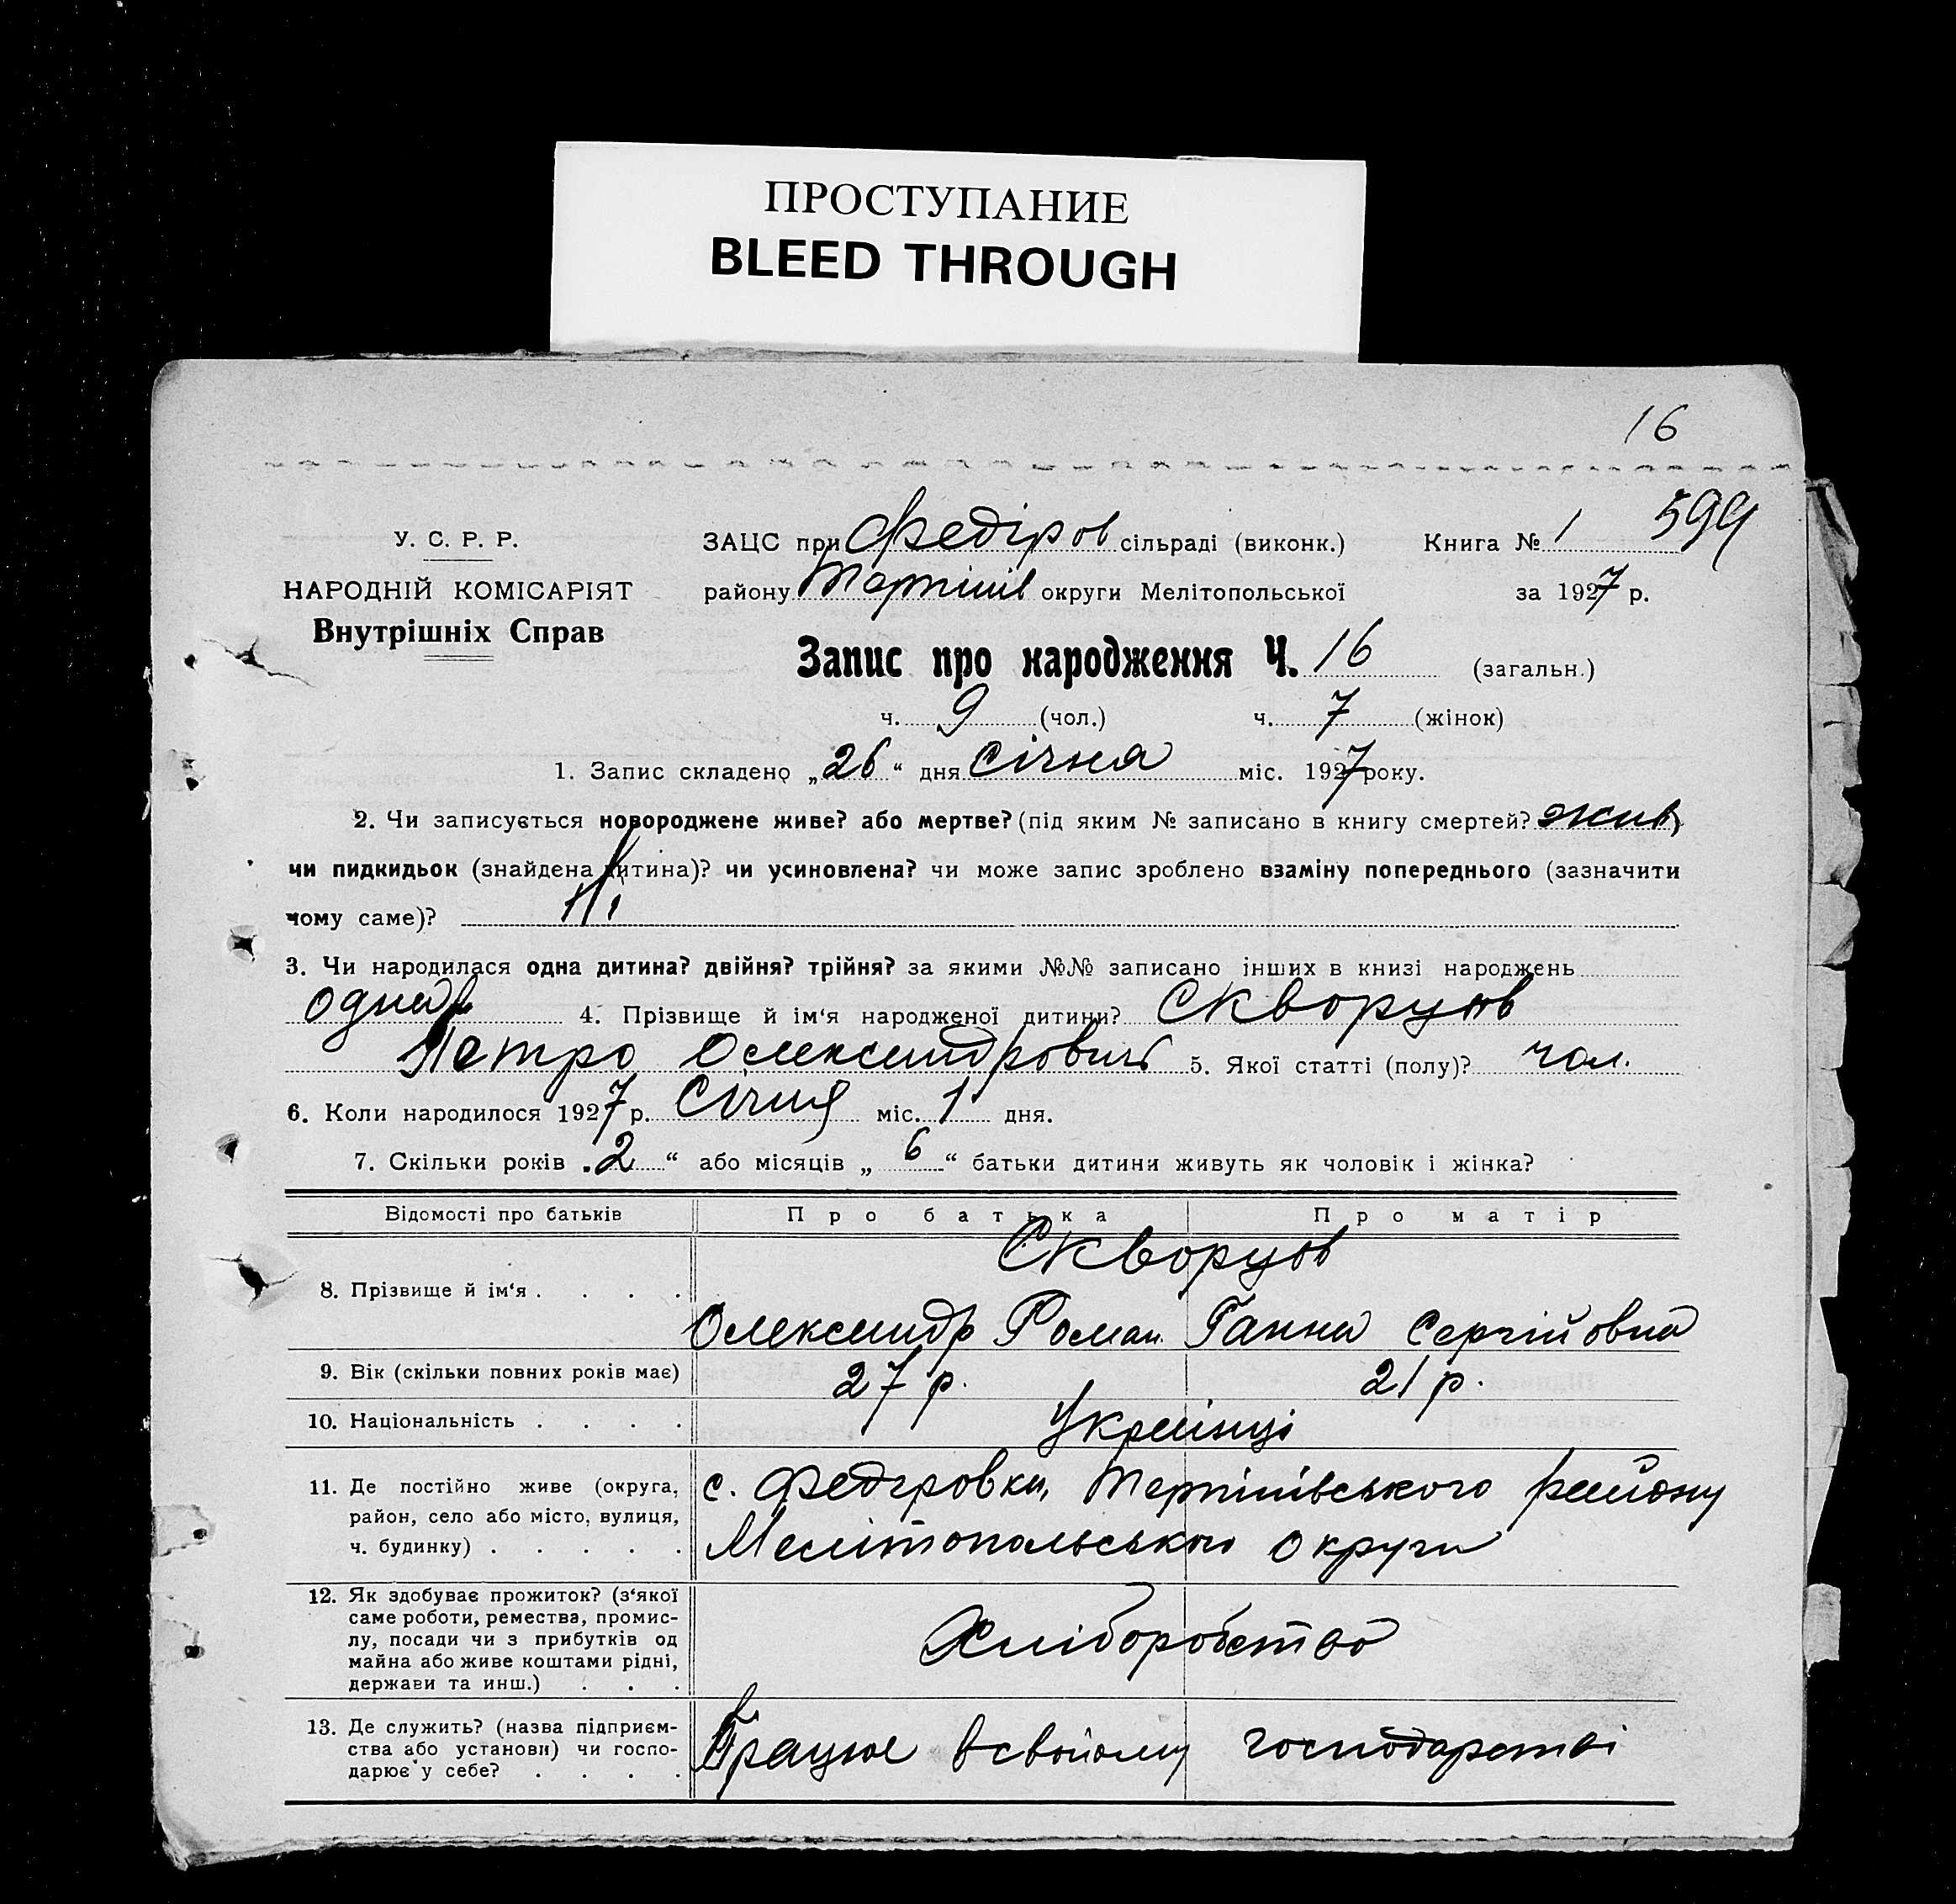 ПРОСТУПАНИЕ
BLEED THROUGH
16
У. С. Р. Р.
НАРОДНІЙ КОМІСАРІЯТ
Внутрішніх Справ
ЗАЦС при Федіров сільраді (виконк.) Книга № 1 599
району Терпінів округи Мелітопольської за 1927 р.
Запис про народження Ч. 16 (загальн.)
ч. 9 (чол.) ч. 7 (жінок)
1. Запис складено „26“ дня Січня міс. 1927 року.
2. Чи записується новороджене живе? або мертве? (під яким № записано в книгу смертей?
чи пидкидьок (знайдена дитина)? чи усиновлена? чи може запис зроблено взаміну попереднього (зазначити
чому саме)? Ні
3. Чи народилася одна дитина? двійня? трійня? за якими №№ записано інших в книзі народжень
одна 4. Прізвище й ім‘я народженої дитини? Скворцов
Петро Олександрович 5. Якої статті (полу)? чол.
6. Коли народилося 1927 р. Січня міс. 1 дня.
7. Скільки років „2“ або місяців „6“ батьки дитини живуть як чоловік і жінка?
Відомості про батьків Про батька Про матір
Скворцов
8. Прізвище й ім‘я . . . .
Олександр Роман. Ганна Сергійовна
9. Вік (скільки повних років має) 27 р. 21 р.
10. Національність . . . . Українці
11. Де постійно живе (округа, с. Федіровка, Терпінівського району
район, село або місто, вулиця,
ч. будинку) . . . . . Мелітопольської округи
12. Як здобуває прожиток? (з‘якої
саме роботи, ремества, промис-
лу, посади чи з прибутків од Хліборобство
майна або живе коштами рідні,
держави та инш.) . . .
13. Де служить? (назва підприєм-
ства або установи) чи госпо- Працює в свойому господарстві
дарює у себе? . . . .